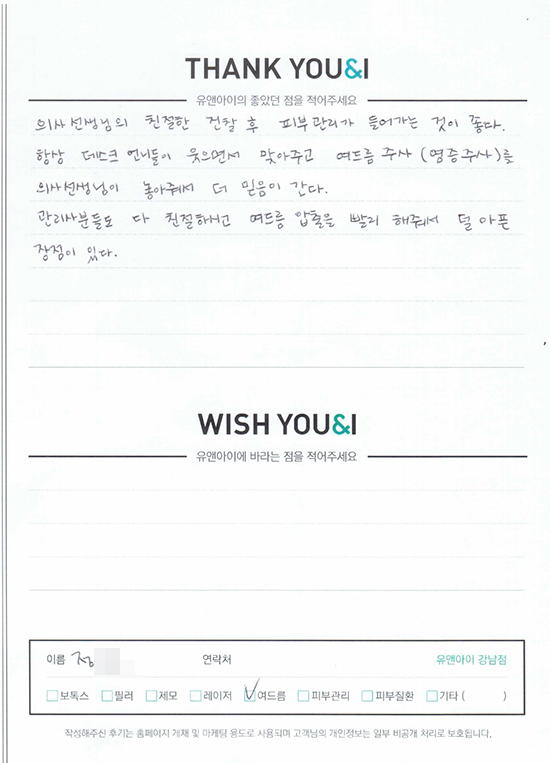 THANK YOU&I
유앤아이의 좋았던 점을 적어주세요
의사선생님의 친절한 진찰 후 피부관리가 들어가는 것이 좋다.
항상 데스크 언니들이 웃으면서 맞아주고 여드름 주사 (염증주사)를
의사선생님이 놓아줘서 더 믿음이 간다.
관리사분들도 다 친절하시고 여드름 압출을 빨리 해줘서 덜 아픈
장점이 있다.
WISH YOU&I
유앤아이에 바라는 점을 적어주세요
이름 정 연락처 유앤아이 강남점
보톡스 필러 제모 레이저 여드름 피부관리 피부질환 기타 ( )
작성해주신 후기는 홈페이지 게재 및 마케팅 용도로 사용되며 고객님의 개인정보는 일부 비공개 처리로 보호됩니다.